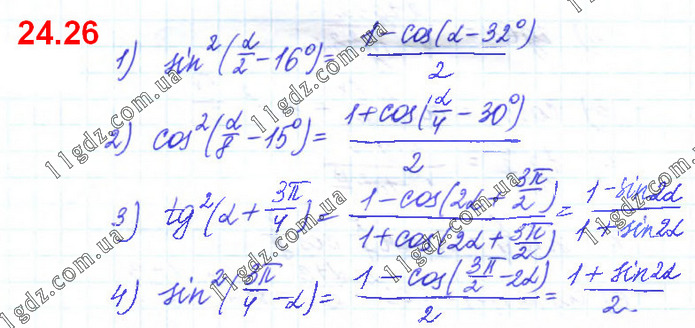 24.26
1) sin²(α/2 − 16°) = (1 − cos(α − 32°))/2
2) cos²(α/8 − 15°) = (1 + cos(α/4 − 30°))/2
3) tg²(α + 3π/4) = (1 − cos(2α + 3π/2))/(1 + cos(2α + 3π/2)) = (1 − sin2α)/(1 + sin2α)
4) sin²(3π/4 − α) = (1 − cos(3π/2 − 2α))/2 = (1 + sin2α)/2
11gdz.com.ua
11gdz.com.ua
11gdz.com.ua
11gdz.com.ua
11gdz.com.ua